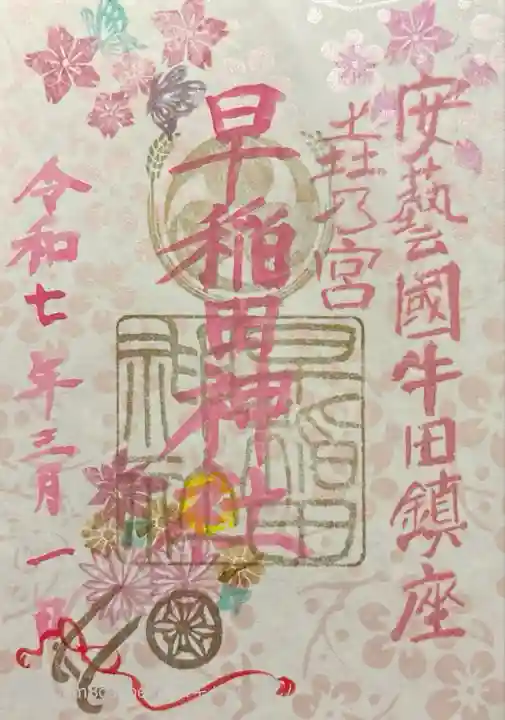 安藝國牛田鎮座
早稲田神社
令和七年三月一日
早稲田
神社